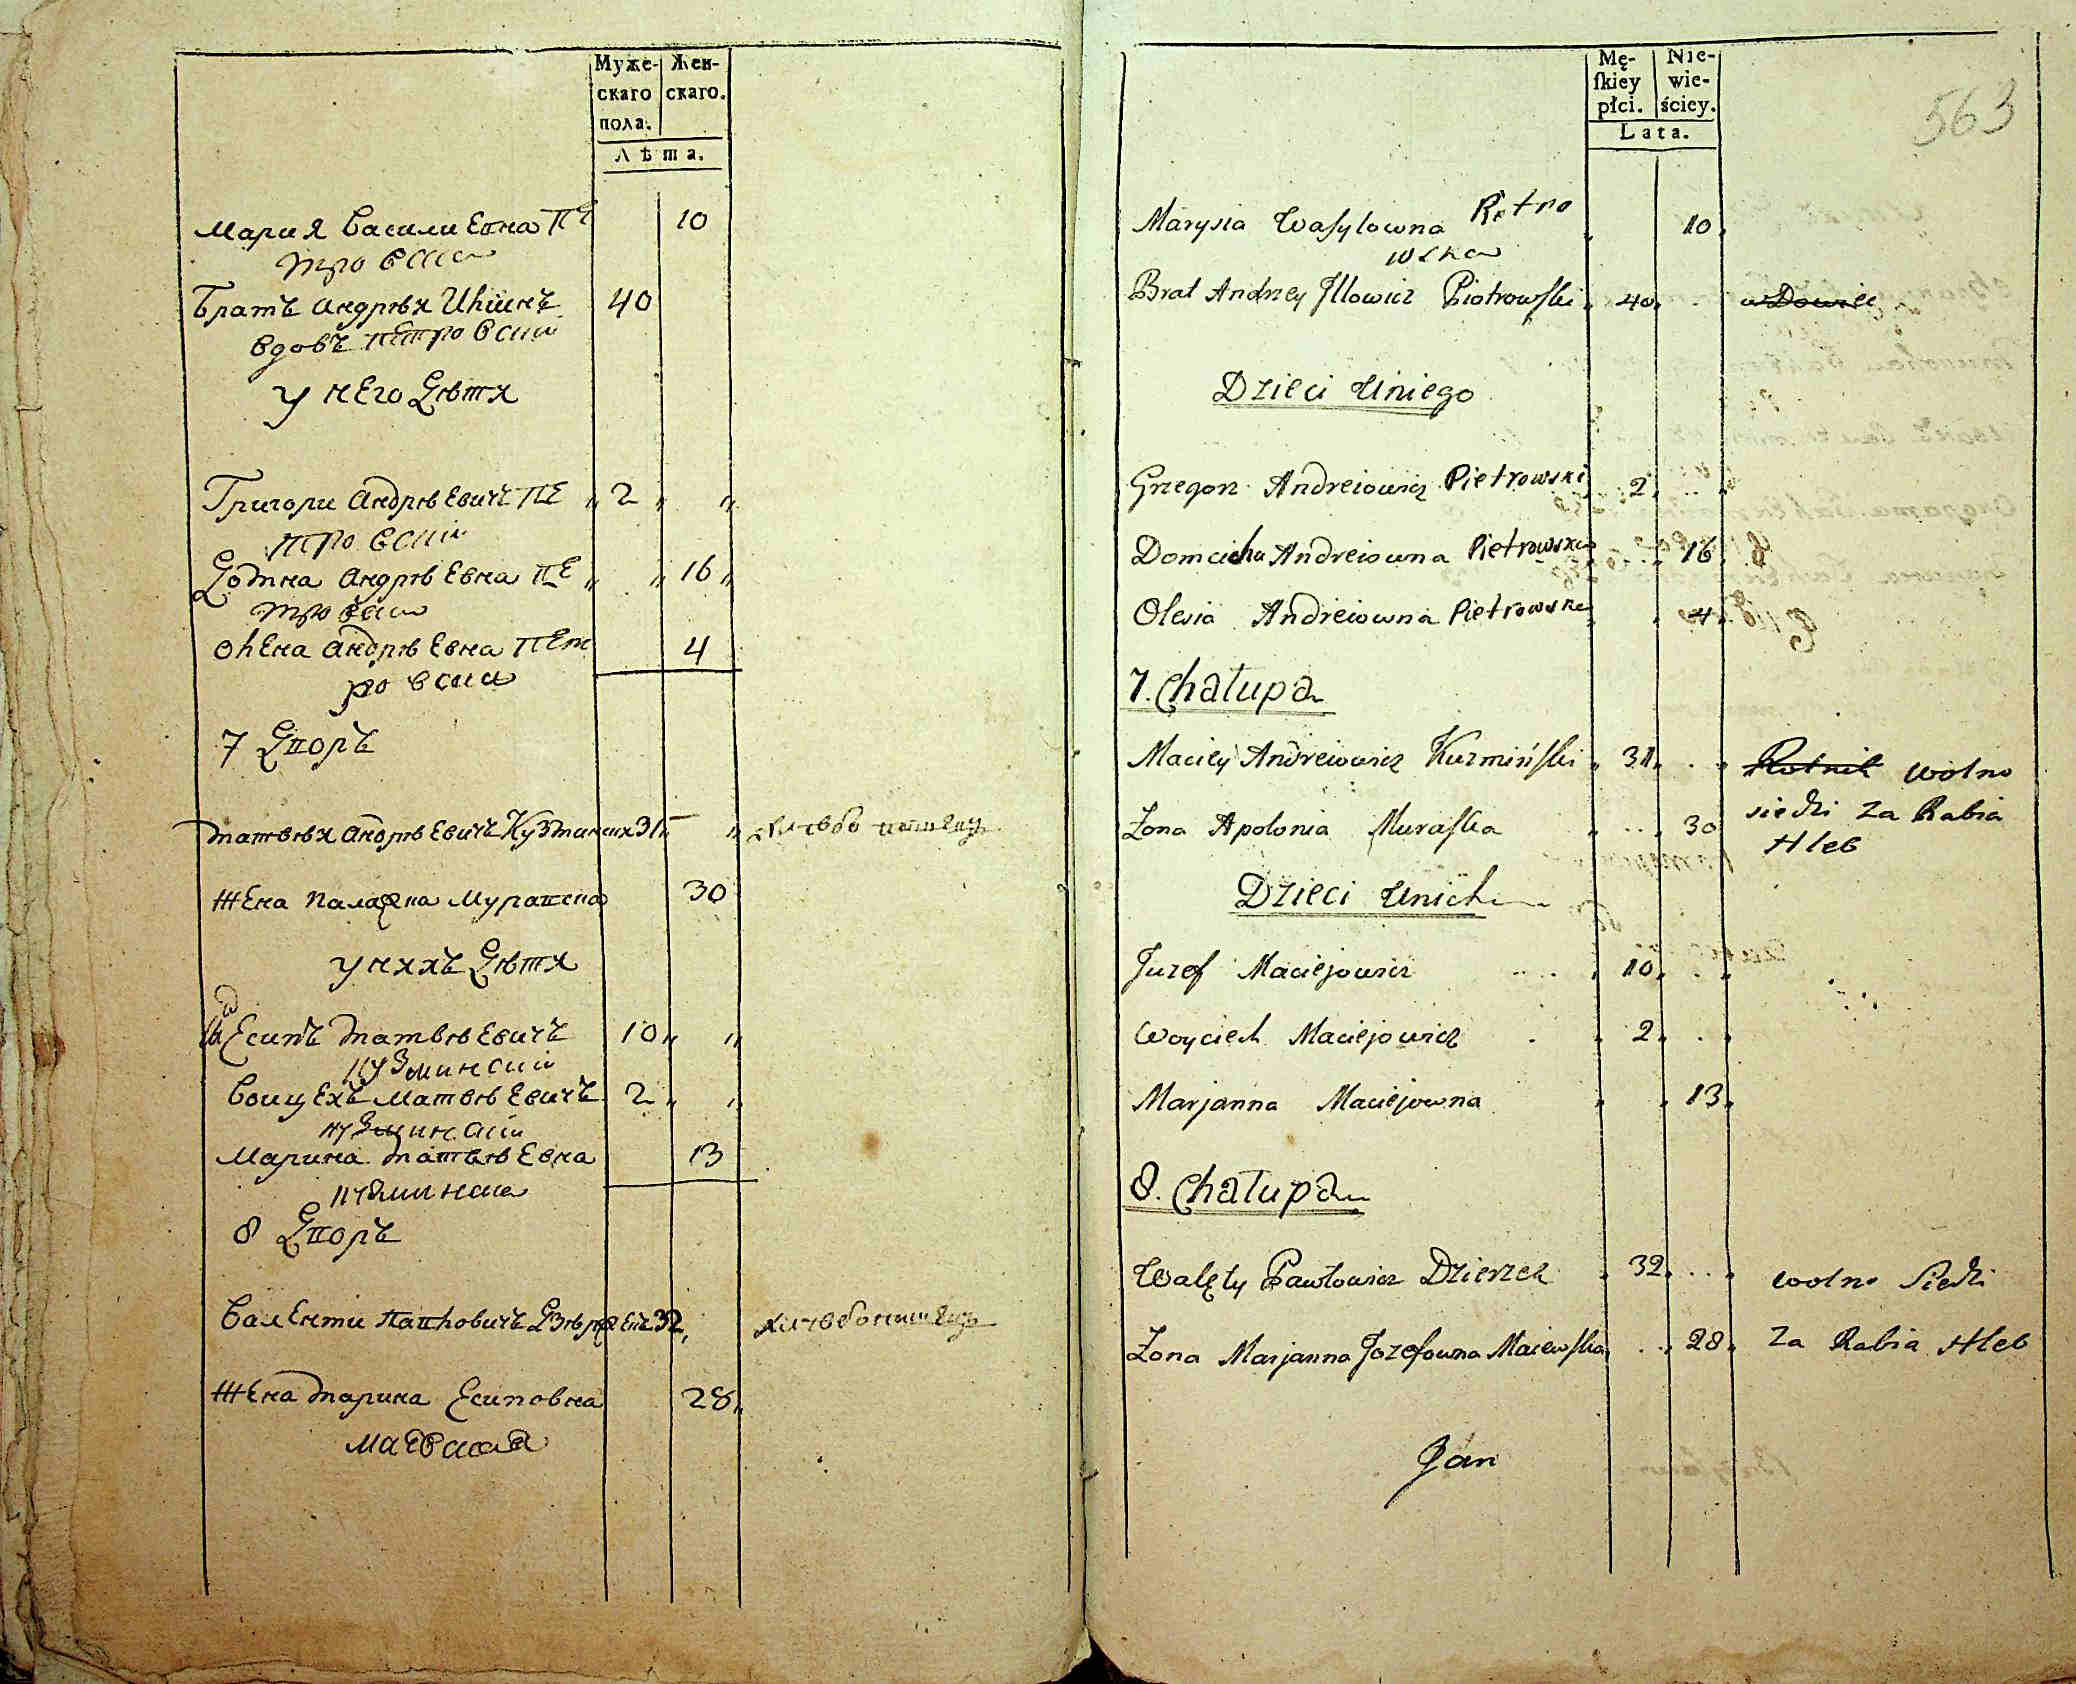 Муже-
скаго
пола.
Жен-
скаго.
Лѣта.
Мария Василиевна Пе 10
тровска
Братъ Андрѣя Илiинъ 40
вдовъ петровскiй
у него Дѣтя
Григори Андрѣевичъ Пе „ 2 „ „
тровскiй
Андрѣевна Пе „ „ 16 „
тровска
Олена Андрѣевна Пет 4
ровска
7 Дворъ
Матвѣя Андрѣевичъ Кузминских 31 „
Жена Мурашска 30
у няхъ Дѣтя
Есипъ Матвѣевичъ 10 „ „
Кузминскiй
Воицехъ Матвѣевичъ 2 „ „
Кузминскiй
Марина Матвѣевна 13
Кузминска
8 Дворъ
Валенти Павловичъ 32 „
Жена Марина Есиповна 28 „
Маевская
Mę-
ſkiey
płci.
Nie-
wie-
ściey.
Lata.
563
Marysia Wasylowna Pietro 10
wska
Brat Andrzey Illowicz Piotrowſki 40 wdowiec
Dzieci Uniego
Grzegorz Andreiowicz Pietrowski 2
Domicicha Andreiowna Pietrowska 16
Olesia Andreiowna Pietrowska 4
7. Chałupa
Maciey Andreiowicz Kuzmińſki 31 Rolnik wolno
Zona Apolonia Muraſka 30 siedzi Za Rabia
Hleb
Dzieci Unich
Juzef Maciejowicz 10
Woyciech Maciejowicz 2
Marjanna Maciejowna 13
8. Chałupa
Walęty Pawłowicz Dzierzek 32 wolno Siedzi
Zona Marjanna Jozefowna Maiewſka 28 Za Rabia Hleb
Jan